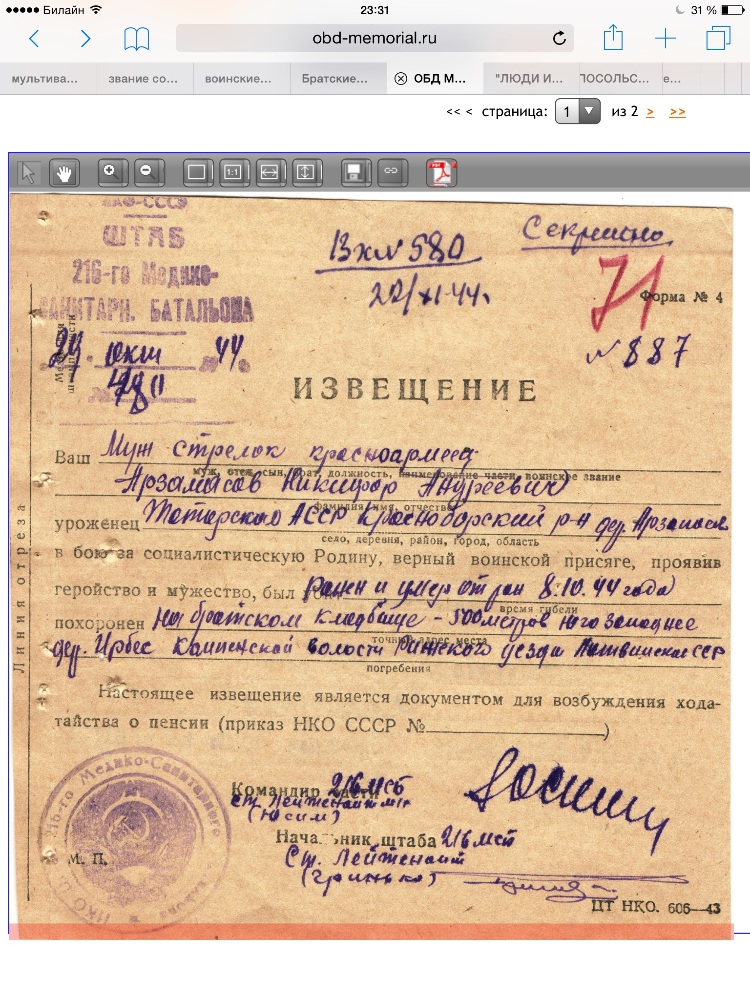 Билайн 23:31 31 %
obd-memorial.ru
мультива... звание со... воинские... Братские... ОБД М... "ЛЮДИ И... ПОСОЛЬС... е...
<< < страница: 1 из 2 > >>
1:1 PDF
НКО-СССР
ШТАБ
216-го Медико-
САНИТАРН. БАТАЛЬОНА
24. окт 44
480
Вх № 580
22/XI-44г.
Секретно
71
Форма № 4
№ 887
ИЗВЕЩЕНИЕ
Ваш Муж стрелок красноармеец
муж, отец, сын, брат, должность, наименование части, воинское звание
Арзамасов Никифор Андреевич
фамилия, имя, отчество
уроженец Татарского АССР Красноборский р-н дер. Арзамасц
село, деревня, район, город, область
в бою за социалистическую Родину, верный воинской присяге, проявив
геройство и мужество, был ранен и умер от ран 8.10.44 года
время гибели
похоронен на братском кладбище - 500 метров юго западнее
точный адрес места
дер. Ирбес Кампенской волости Рижского уезда Латвийская ССР
погребения
Настоящее извещение является документом для возбуждения хода-
тайства о пенсии (приказ НКО СССР № )
Командир части 216 мсб
ст. Лейтенант м/с
(Юсим)
Начальник штаба 216 мсб
Ст. Лейтенант
(Гринько)
М. П.
216-го Медико-Санитарного
НКО
ЦТ НКО. 606—43
Линия отреза